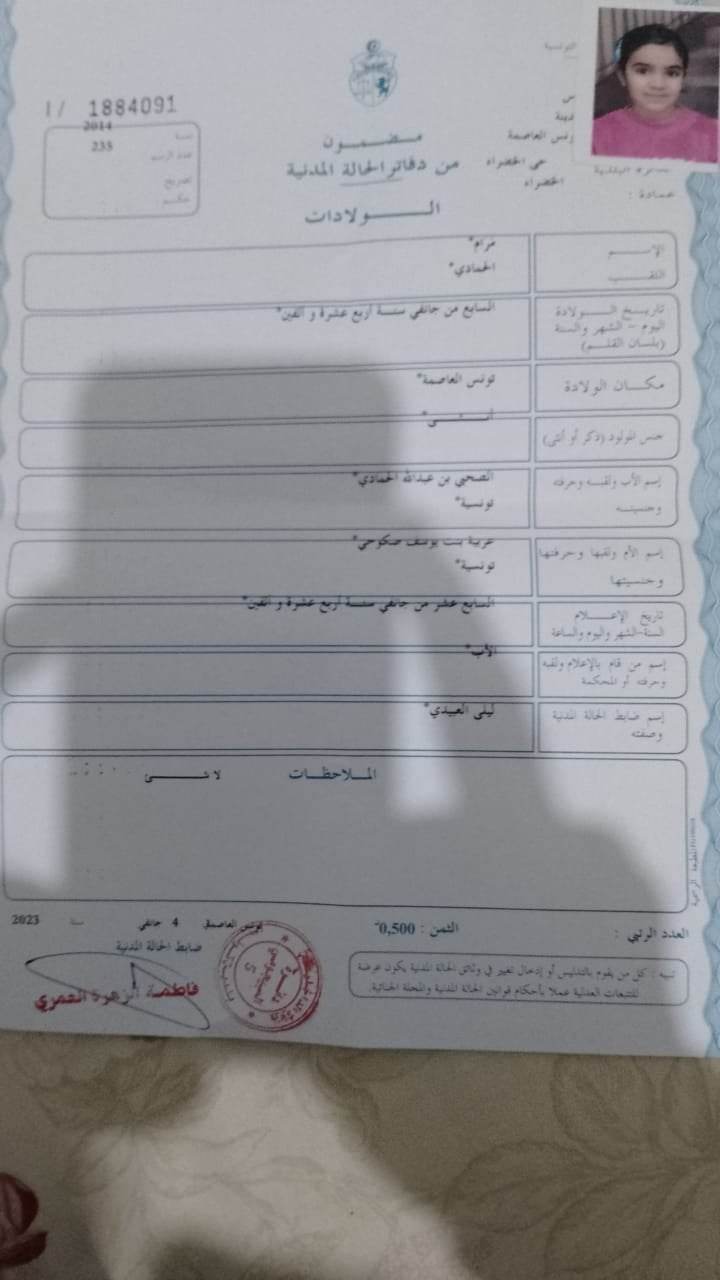 1884091 /I
سنة 2014
عدد الرسم 235
تصريح
حكم
مضمون
من دفاتر الحالة المدنية
الولادات
التونسية
تونس العاصمة
حي الخضراء
الخضراء
عمادة :
الإسم
اللقب
مرام*
الحمادي*
تاريخ الولادة
اليوم - الشهر والسنة
(بلسان القلم)
السابع من جانفي سنة أربع عشرة و ألفين*
مكان الولادة
تونس العاصمة*
جنس المولود (ذكر أو أنثى)
أنثى*
إسم الأب ولقبه وحرفته
وجنسيته
الصحبي بن عبدالله الحمادي*
تونسية*
إسم الأم ولقبها وحرفتها
وجنسيتها
عربية بنت يوسف صكوحي*
تونسية*
تاريخ الإعلام
السنة-الشهر واليوم والساعة
السابع عشر من جانفي سنة أربع عشرة و ألفين*
إسم من قام بالإعلام ولقبه
وحرفته أو المحكمة
الأب*
إسم ضابط الحالة المدنية
وصفته
ليلى العبيدي*
الملاحظات
لا شئ
المطبعة الرسمية
العدد الرتبي :
الثمن : 0,500
تونس العاصمة 4 جانفي سنة 2023
ضابط الحالة المدنية
فاطمة الزهرة العمري
تنبيه : كل من يقوم بالتدليس أو إدخال تغيير في وثائق الحالة المدنية يكون عرضة
للتتبعات العدلية عملا بأحكام قوانين الحالة المدنية والمجلة الجنائية.